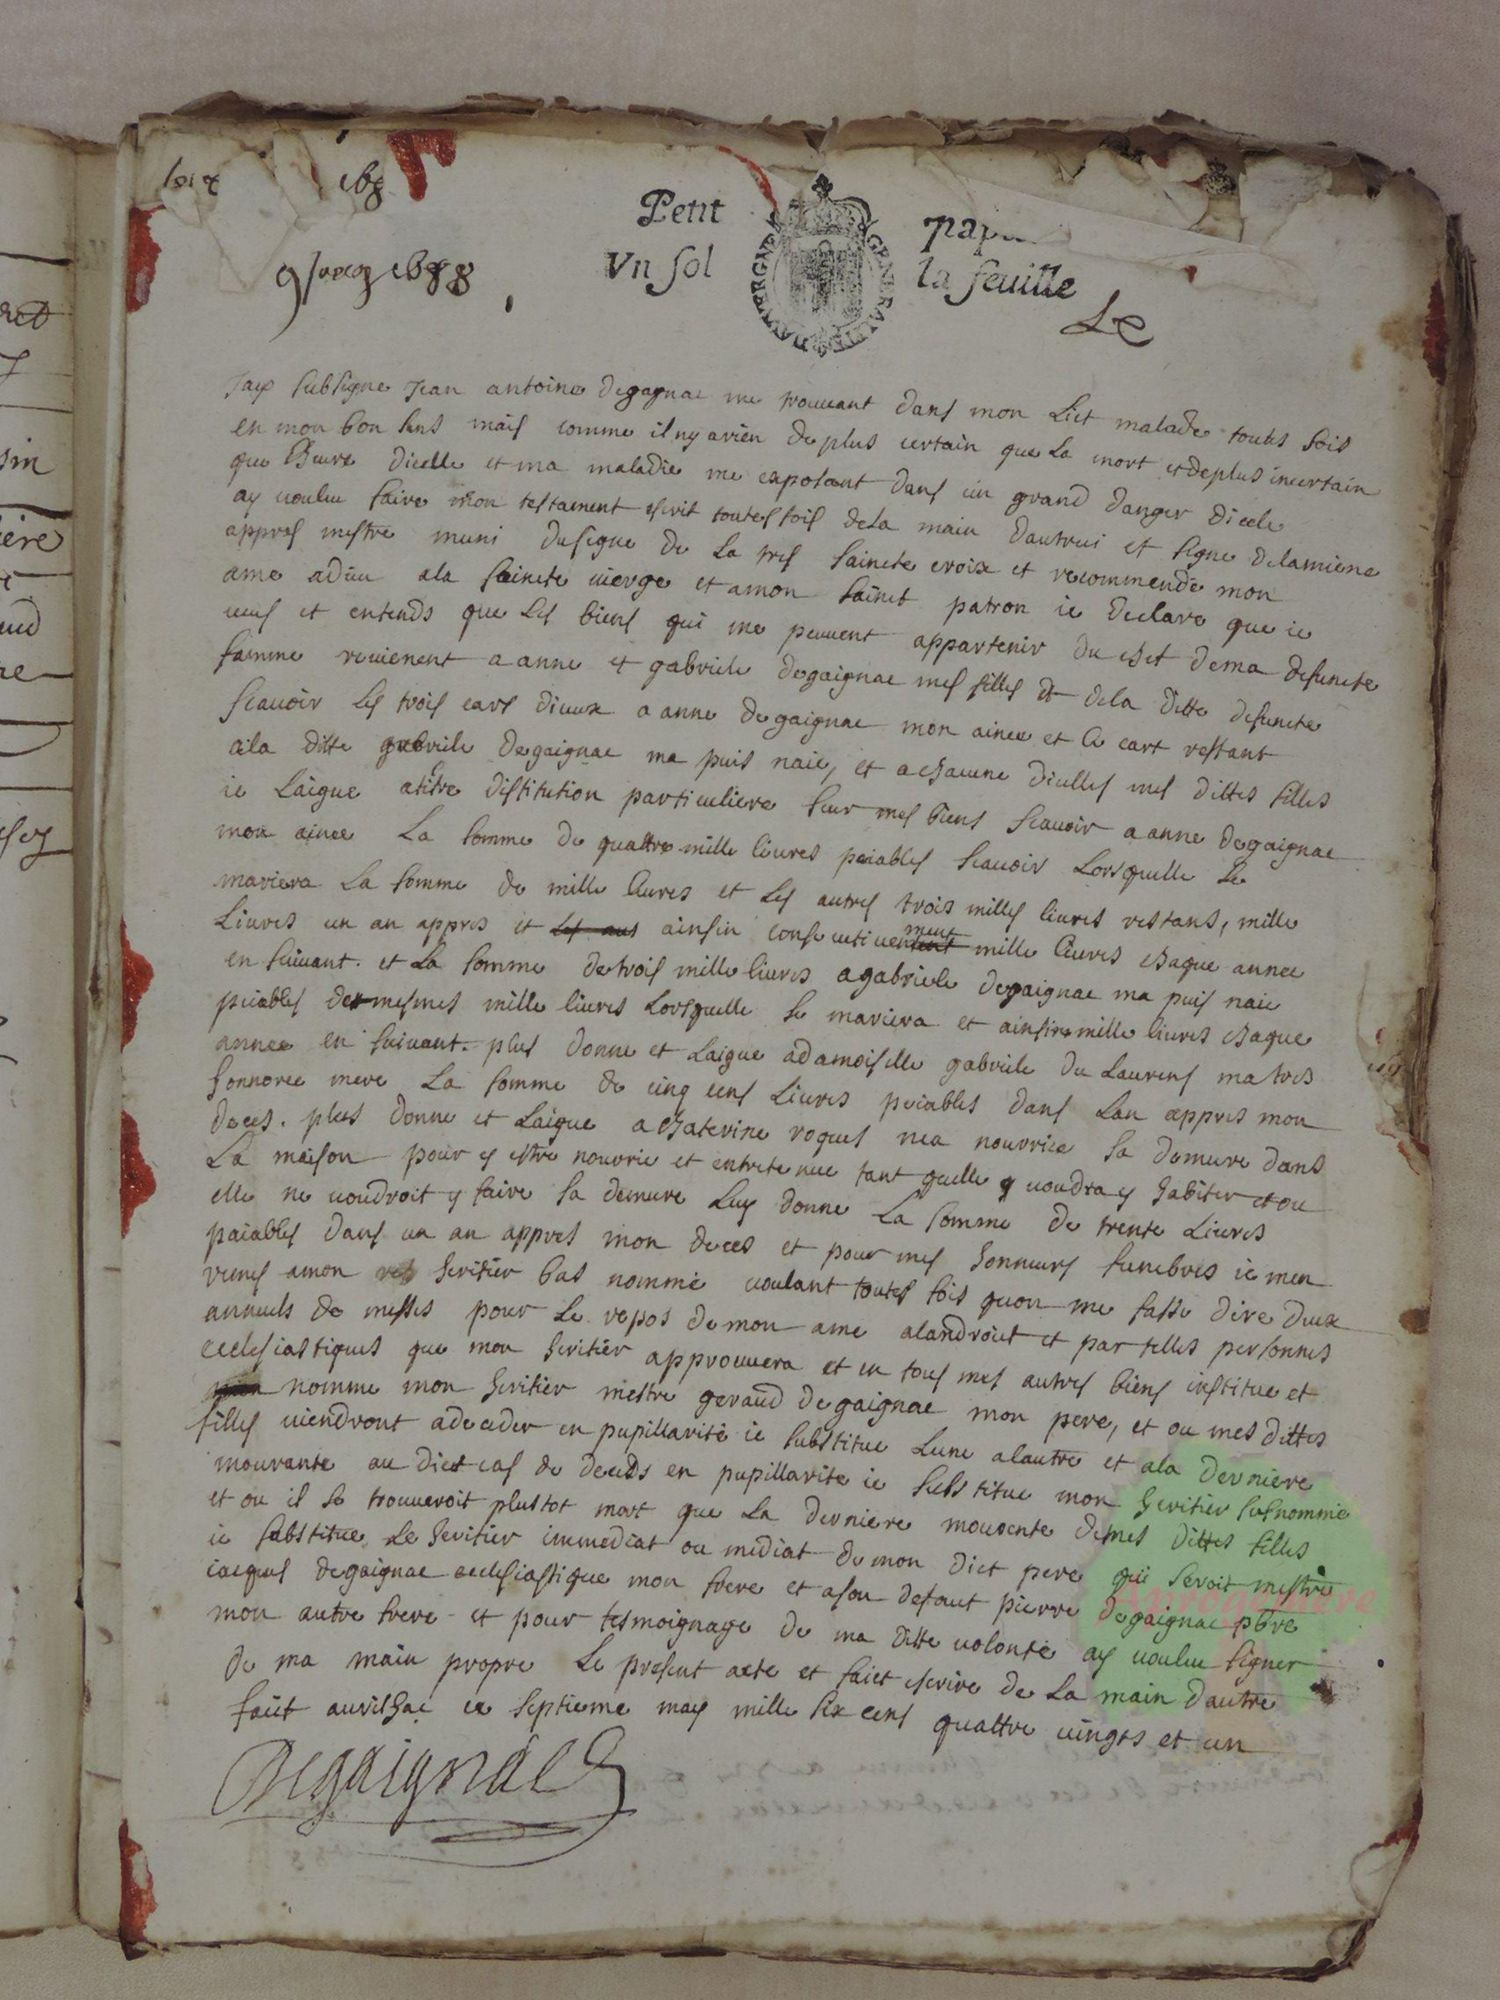 Petit papi
Vn sol la feuille
GENERALITE DAVVERGNE
Le
Jay subsigne Jean antoine degagnac me trouvant dans mon Lict malade toutes fois
en mon bon sens mais comme il ny a rien de plus certain que La mort et de plus incertain
que lheure dicelle et ma maladie me exposant dans un grand danger dicele
ay voulu faire mon testament escrit toutes fois de La main dautrui et signe de la miene
appres mestre muni du signe de La tres saincte croix et recommende mon
ame a dieu a la saincte vierge et a mon sainct patron ie declare que ie
veus et entends que Les biens qui me peuvent appartenir du chef de ma defuncte
famme revienent a anne et gabriele degaignac mes filles et de la ditte defuncte
scavoir Les trois cars diceux a anne degaignac mon ainee et le cart restant
a la ditte gabriele degaignac ma puis naie, et a chacune dicelles mes dittes filles
ie Laigue a titre distitution particuliere sur mes biens scavoir a anne degaignac
mon ainee La somme de quattre mille livres paiables scavoir Lorsquelle se
mariera La somme de mille livres et Les autres trois milles livres restans, mille
Livres un an appres et ainsin consecutivement mille livres chaque annee
en suivant. et La somme de trois mille livres a gabriele degaignac ma puis naie
paiables de mesmes mille livres Lorsquelle se mariera et ainsin mille livres chaque
annee en suivant. plus donne et Laigue a damoiselle gabriele du Laurens ma tres
honnoree mere La somme de cinq cens Livres paiables dans Lan appres mon
deces. plus donne et Laigue a chaterine roques ma nourrice sa demure dans
La maison pour y estre nourrie et entretenue tant quelle y voudra y habiter et ou
elle ne voudroit y faire sa demure Luy donne La somme de trente Livres
paiables dans un an appres mon deces et pour mes honneurs funebres ie men
remes a mon heritier bas nommé voulant toutes fois quon me fasse dire deux
annuels de messes pour Le repos de mon ame a landroit et par telles personnes
ecclesiastiques que mon heritier approuvera et en tous mes autres biens institue et
nomme mon heritier mestre geraud degaignac mon pere, et ou mes dittes
filles viendront a deceder en pupillarité ie substitue Lune a lautre et a la derniere
mourante au dict cas de deceds en pupillarité ie substitue mon heritier susnommé
et ou il se trouveroit plustot mort que La derniere mourante de mes dittes filles
ie substitue Le heritier immediat ou mediat de mon dict pere qui seroit mestre
iacques degaignac ecclesiastique mon frere et a son defaut pierre degaignac pbre
mon autre frere et pour tesmoignage de ma ditte volonté ay voulu signer
de ma main propre Le present acte et faict escrire de La main dautre
faict aurilhac ce septieme may mille six cens quattre vingts et un
Degaignac
Aprogemere